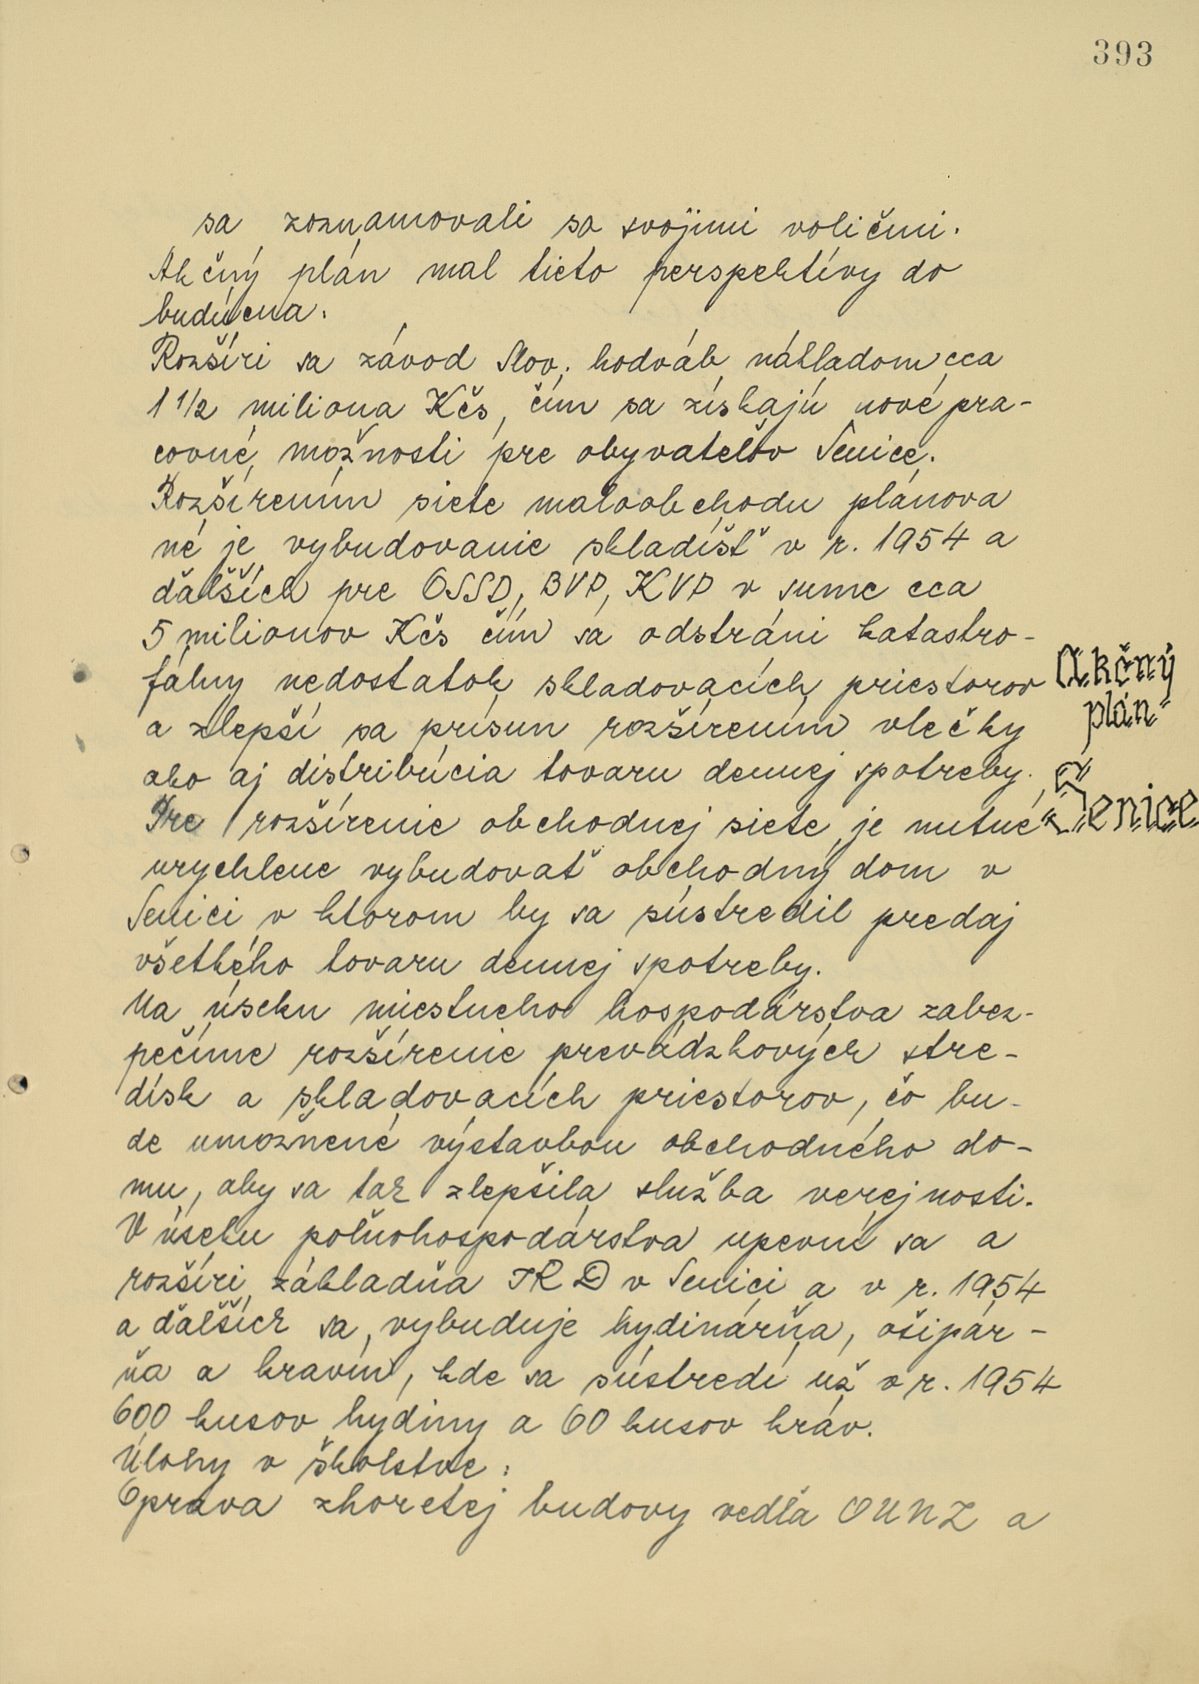 393
sa zoznamovali so svojimi voličmi.
Akčný plán mal tieto perspektívy do
budúcna.
Rozšíri sa závod Slov. hodváb nákladom cca
1 1/2 miliona Kčs, čím sa získajú nové pra-
covné možnosti pre obyvateľov Senice.
Rozšírením siete maloobchodu plánova
né je vybudovanie skladíšť v r. 1954 a
ďalších pre OSSD, BVP, KVP v sume cca
5 milionov Kčs čím sa odstráni katastro-
fálny nedostatok skladovacích priestorov
a zlepší sa prísun rozšírením vlečky
ako aj distribúcia tovaru dennej spotreby.
Pre rozšírenie obchodnej siete je nutné
urychlene vybudovať obchodný dom v
Senici v ktorom by sa sústredil predaj
všetkého tovaru dennej spotreby.
Na úseku miestneho hospodárstva zabez-
pečíme rozšírenie prevádzkových stre-
dísk a skladovacích priestorov, čo bu-
de umožnené výstavbou obchodného do-
mu, aby sa tak zlepšila služba verejnosti.
V úseku poľnohospodárstva upevní sa a
rozšíri základňa JRD v Senici a v r. 1954
a ďalších sa vybuduje hydináreň, ošipár-
ňa a kravín, kde sa sústredí už v r. 1954
600 kusov hydiny a 60 kusov kráv.
Úlohy v školstve:
Oprava zhoretej budovy vedľa OÚNZ a
Akčný
plán
Senice